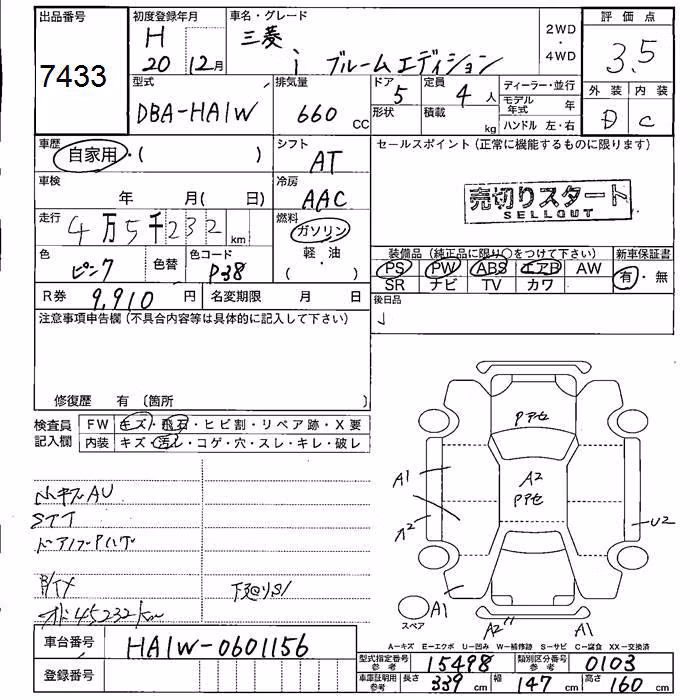 出品番号
7433
初度登録年月
H
20年12月
車名・グレード
三菱
i ブルームエディション
2WD
・
4WD
評価点
3.5
外装 内装
D C
型式
DBA-HA1W
排気量
660 CC
ドア
5
形状
定員
4人
積載
kg
ディーラー・並行
モデル年式 年
ハンドル 左・右
車歴
自家用・( )
シフト
AT
セールスポイント (正常に機能するものに限ります)
売切りスタート
SELLOUT
車検
年 月( 日)
冷房
AAC
走行
4万5千232 km
燃料
ガソリン
軽・油
( )
色
ピンク
色替
色コード
P38
装備品 (純正品に限り○をつけて下さい)
新車保証書
PS PW ABS エアB AW
SR ナビ TV カワ
有・無
R券
9,910 円
名変期限 月 日
後日品
注意事項申告欄 (不具合内容等は具体的に記入して下さい)
修復歴 有 〔箇所 〕
検査員
記入欄
FW キズ・飛石・ヒビ割・リペア跡・X要
内装 キズ・汚レ・コゲ・穴・スレ・キレ・破レ
小キズAU
オド45232km
Pアセ
A2
Pアセ
A1
U2
A1
A2"
A1
スペア
A-キズ E-エクボ U-凹み W-補修跡 S-サビ C-腐食 XX-交換済
車台番号
HA1W-0601156
登録番号
型式指定番号
参考
15498
類別区分番号
参考
0103
車庫証明用
参考
長さ 339 cm
幅 147 cm
高さ 160 cm